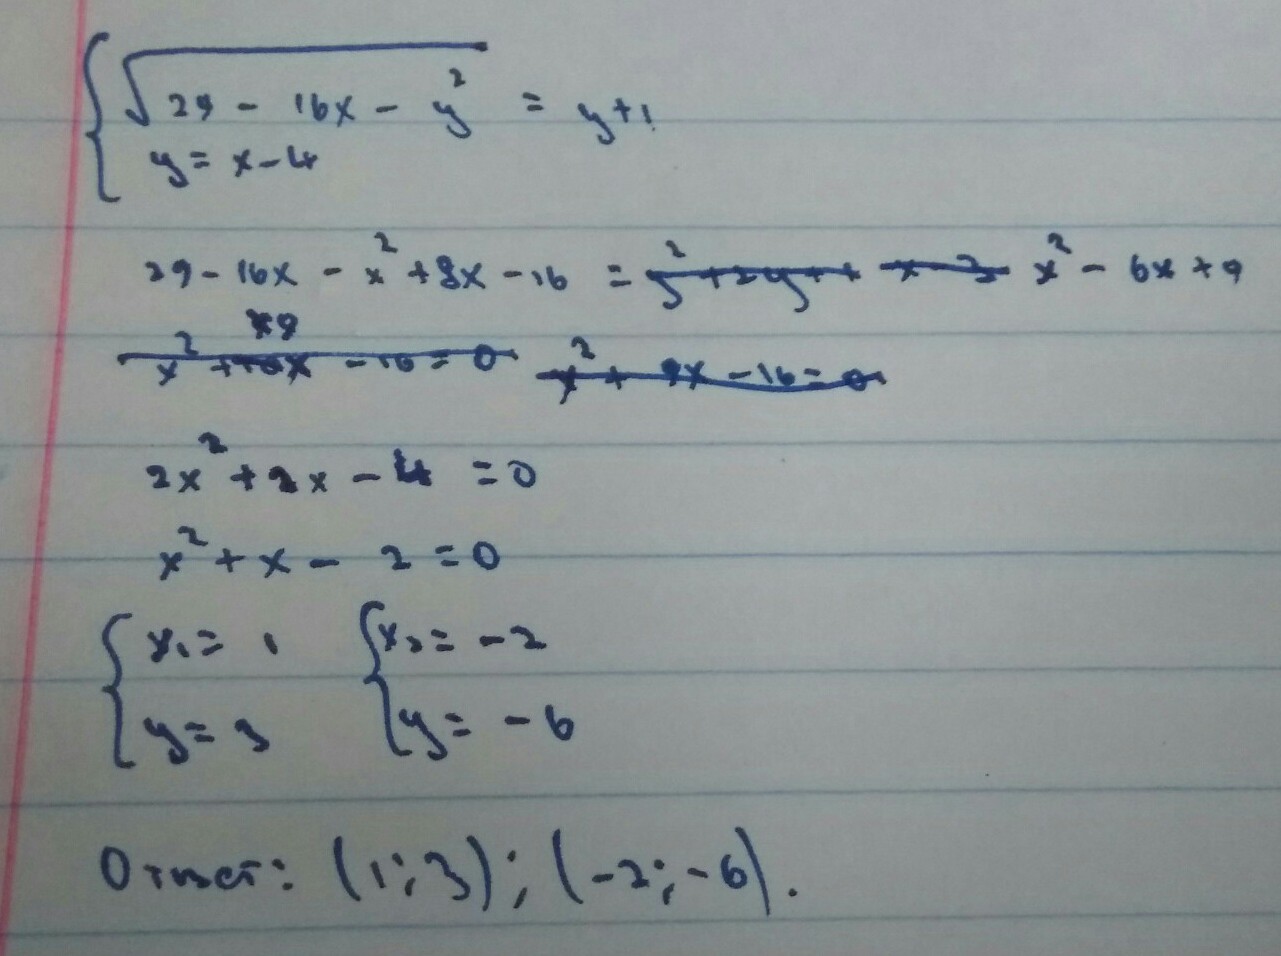 √(29 - 16x - y²) = y+1
y = x-4
29 - 16x - x² + 8x - 16 = y² + 2y + 1 x - 3 x² - 6x + 9
2x² + 2x - 4 = 0
x² + x - 2 = 0
x₁ = 1 x₂ = -2
y = 3 y = -6
Ответ: (1;3); (-2;-6).